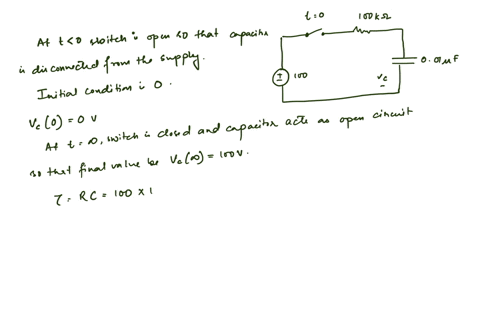 At t<0 switch is open so that capacitor
is disconnected from the supply.
Initial condition is 0.
Vc(0) = 0 V
At t = ∞, switch is closed and capacitor acts as open circuit
so that final value be Vc(∞) = 100V.
τ = RC = 100 × 1
t=0
100kΩ
100
Vc
0.01μF